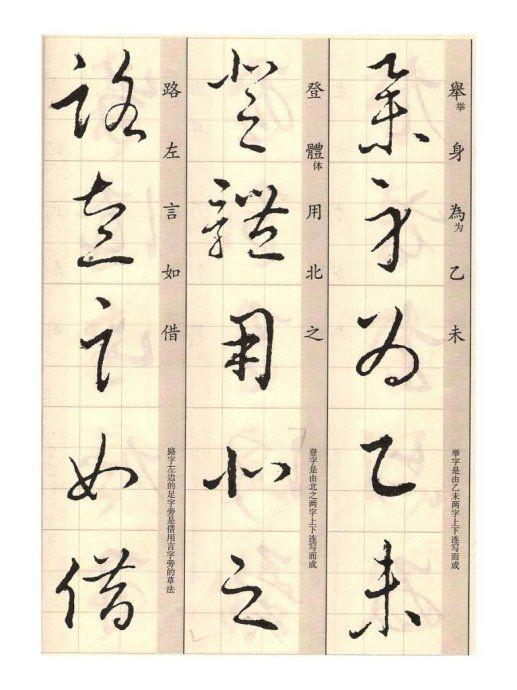 舉身為乙未
舉举身為为乙未
举字是由乙未两字上下连写而成
登體用北之
登體体用北之
登字是由北之两字上下连写而成
路左言如借
路左言如借
路字左边的足字旁是借用言字旁的草法